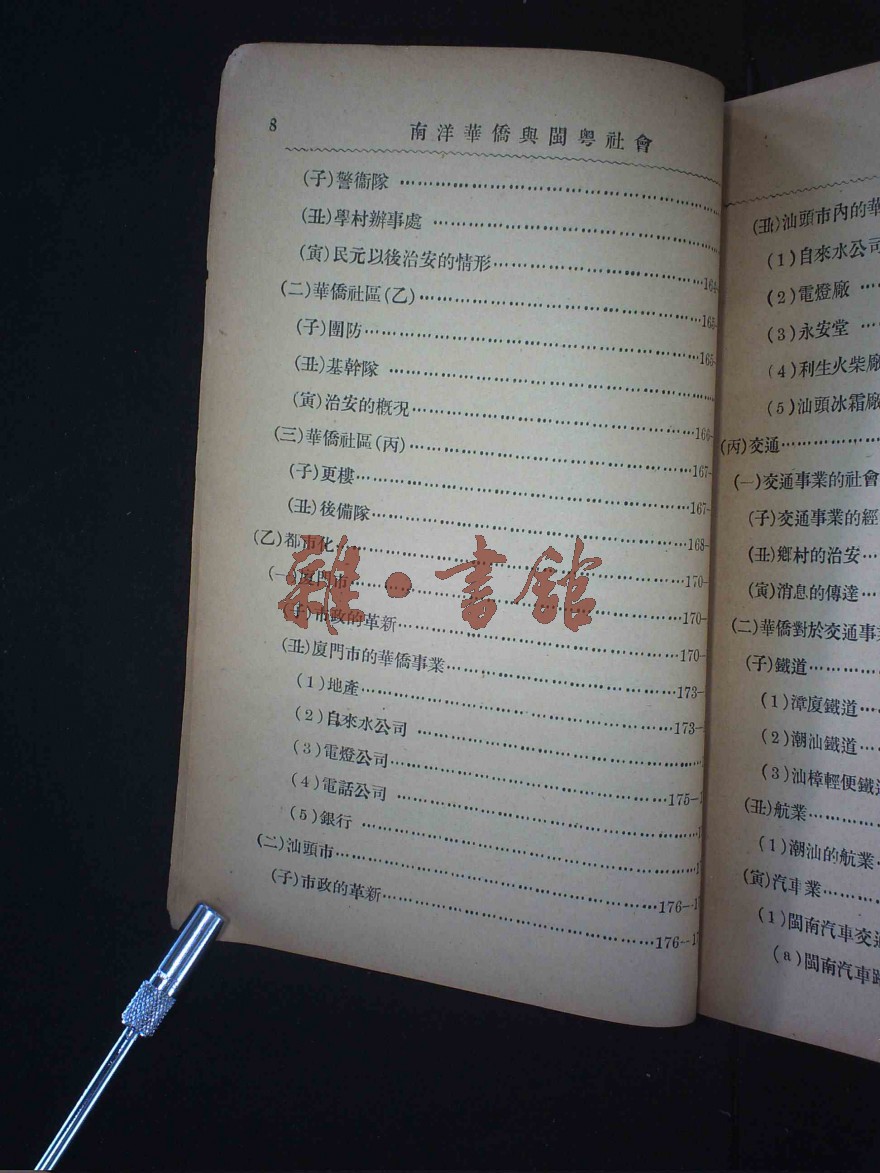 8
南洋華僑與閩粵社會
(子)警衞隊
(丑)學村辦事處
(寅)民元以後治安的情形……164-
(二)華僑社區(乙)……165-
(子)團防……165-
(丑)基幹隊
(寅)治安的概況……166-
(三)華僑社區(丙)……167-
(子)更樓……167-
(丑)後備隊……168-
(乙)都市化……170-
(一)厦門市……170-
(子)市政的革新……170-
(丑)厦門市的華僑事業……173-
(1)地產……173-
(2)自來水公司
(3)電燈公司
(4)電話公司……175-1
(5)銀行
(二)汕頭市……176-1
(子)市政的革新……176-17
雜·書館
(丑)汕頭市內的華
(1)自來水公司
(2)電燈廠
(3)永安堂
(4)利生火柴廠
(5)汕頭冰霜廠
(丙)交通
(一)交通事業的社會
(子)交通事業的經
(丑)鄉村的治安
(寅)消息的傳達
(二)華僑對於交通事業
(子)鐵道
(1)漳厦鐵道
(2)潮汕鐵道
(3)汕樟輕便鐵道
(丑)航業
(1)潮汕的航業
(寅)汽車業
(1)閩南汽車交通
(a)閩南汽車路